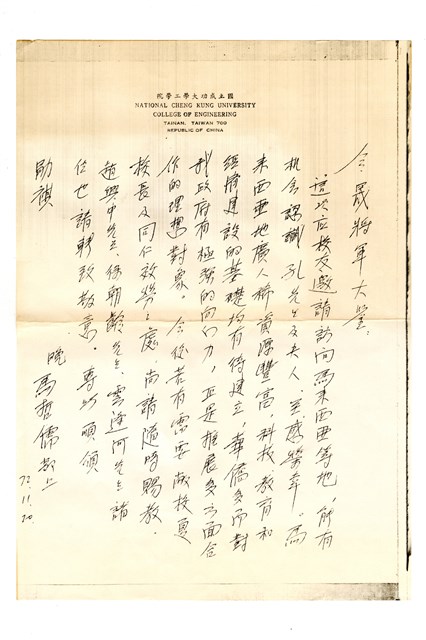 國立成功大學工學院
NATIONAL CHENG KUNG UNIVERSITY
COLLEGE OF ENGINEERING
TAINAN, TAIWAN 700
REPUBLIC OF CHINA
令晟將軍大鑒：
這次應校友邀請訪問馬來西亞等地，能有
機會認識孔先生及夫人，至感榮幸。馬
來西亞地廣人稀，資源豐富，科技、教育和
經濟建設的基礎均有待建立，華僑多而對
我政府有極強的向心力，正是推展多方面合
作的理想對象。今後若有需要敝校夏
校長及同仁效勞之處，尚請隨時賜教。
趙興中先生、徐朝齡先生、雲逢河先生諸
位也請轉致敬意。專此順頌
勛祺
晚 馬哲儒敬上
72.11.20.